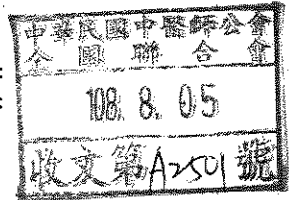 :
:
中華民國中醫師公會
全國聯合會
108. 8. 05
收文第A2501號